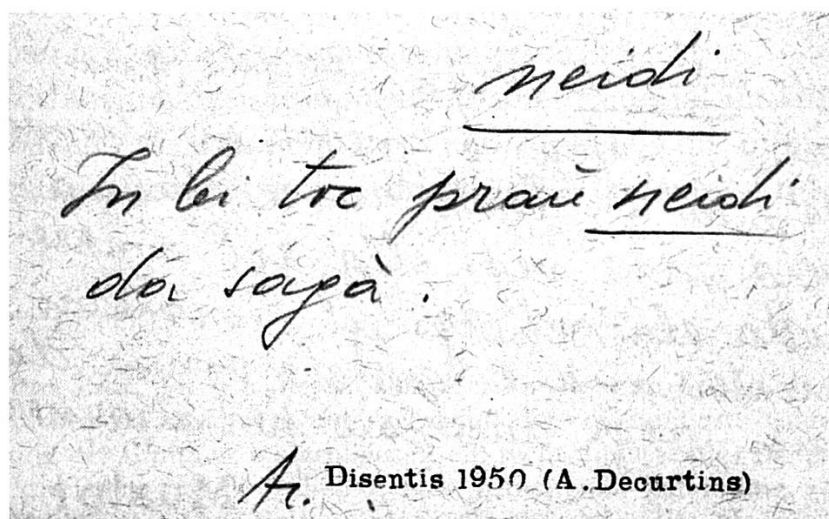 neidi
In bi toc praŭ neidi
da sagà.
A. Disentis 1950 (A.Decurtins)